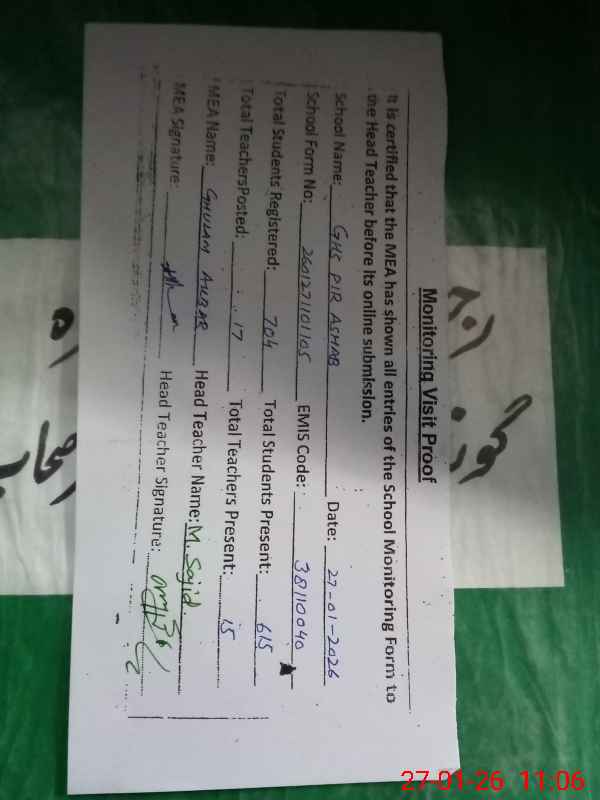 Monitoring Visit Proof
It is certified that the MEA has shown all entries of the School Monitoring Form to
the Head Teacher before its online submission.
School Name: GHS PIR ASHAB Date: 27-01-2026
School Form No: 2601271101105 EMIS Code: 38110040
Total Students Registered: 704 Total Students Present: 615
Total TeachersPosted: 17 Total Teachers Present: 15
MEA Name: GHULAM Head Teacher Name: M. Sajid
MEA Signature: Head Teacher Signature:
27-01-26 11:06